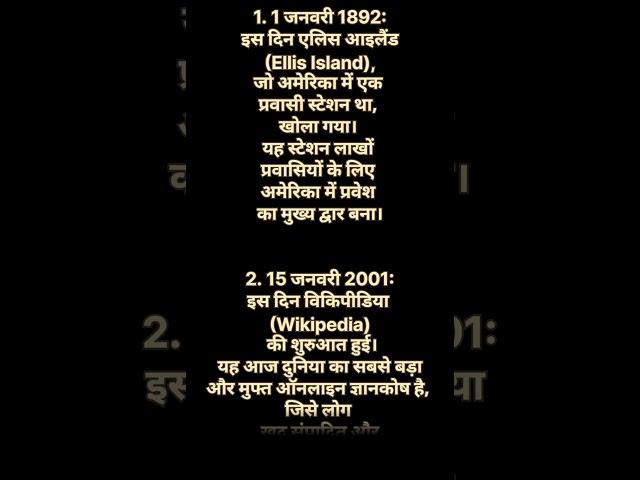 1. 1 जनवरी 1892:
इस दिन एलिस आइलैंड
(Ellis Island),
जो अमेरिका में एक
प्रवासी स्टेशन था,
खोला गया।
यह स्टेशन लाखों
प्रवासियों के लिए
अमेरिका में प्रवेश
का मुख्य द्वार बना।
2. 15 जनवरी 2001:
इस दिन विकिपीडिया
(Wikipedia)
की शुरुआत हुई।
यह आज दुनिया का सबसे बड़ा
और मुफ्त ऑनलाइन ज्ञानकोष है,
जिसे लोग
खुद संपादित और